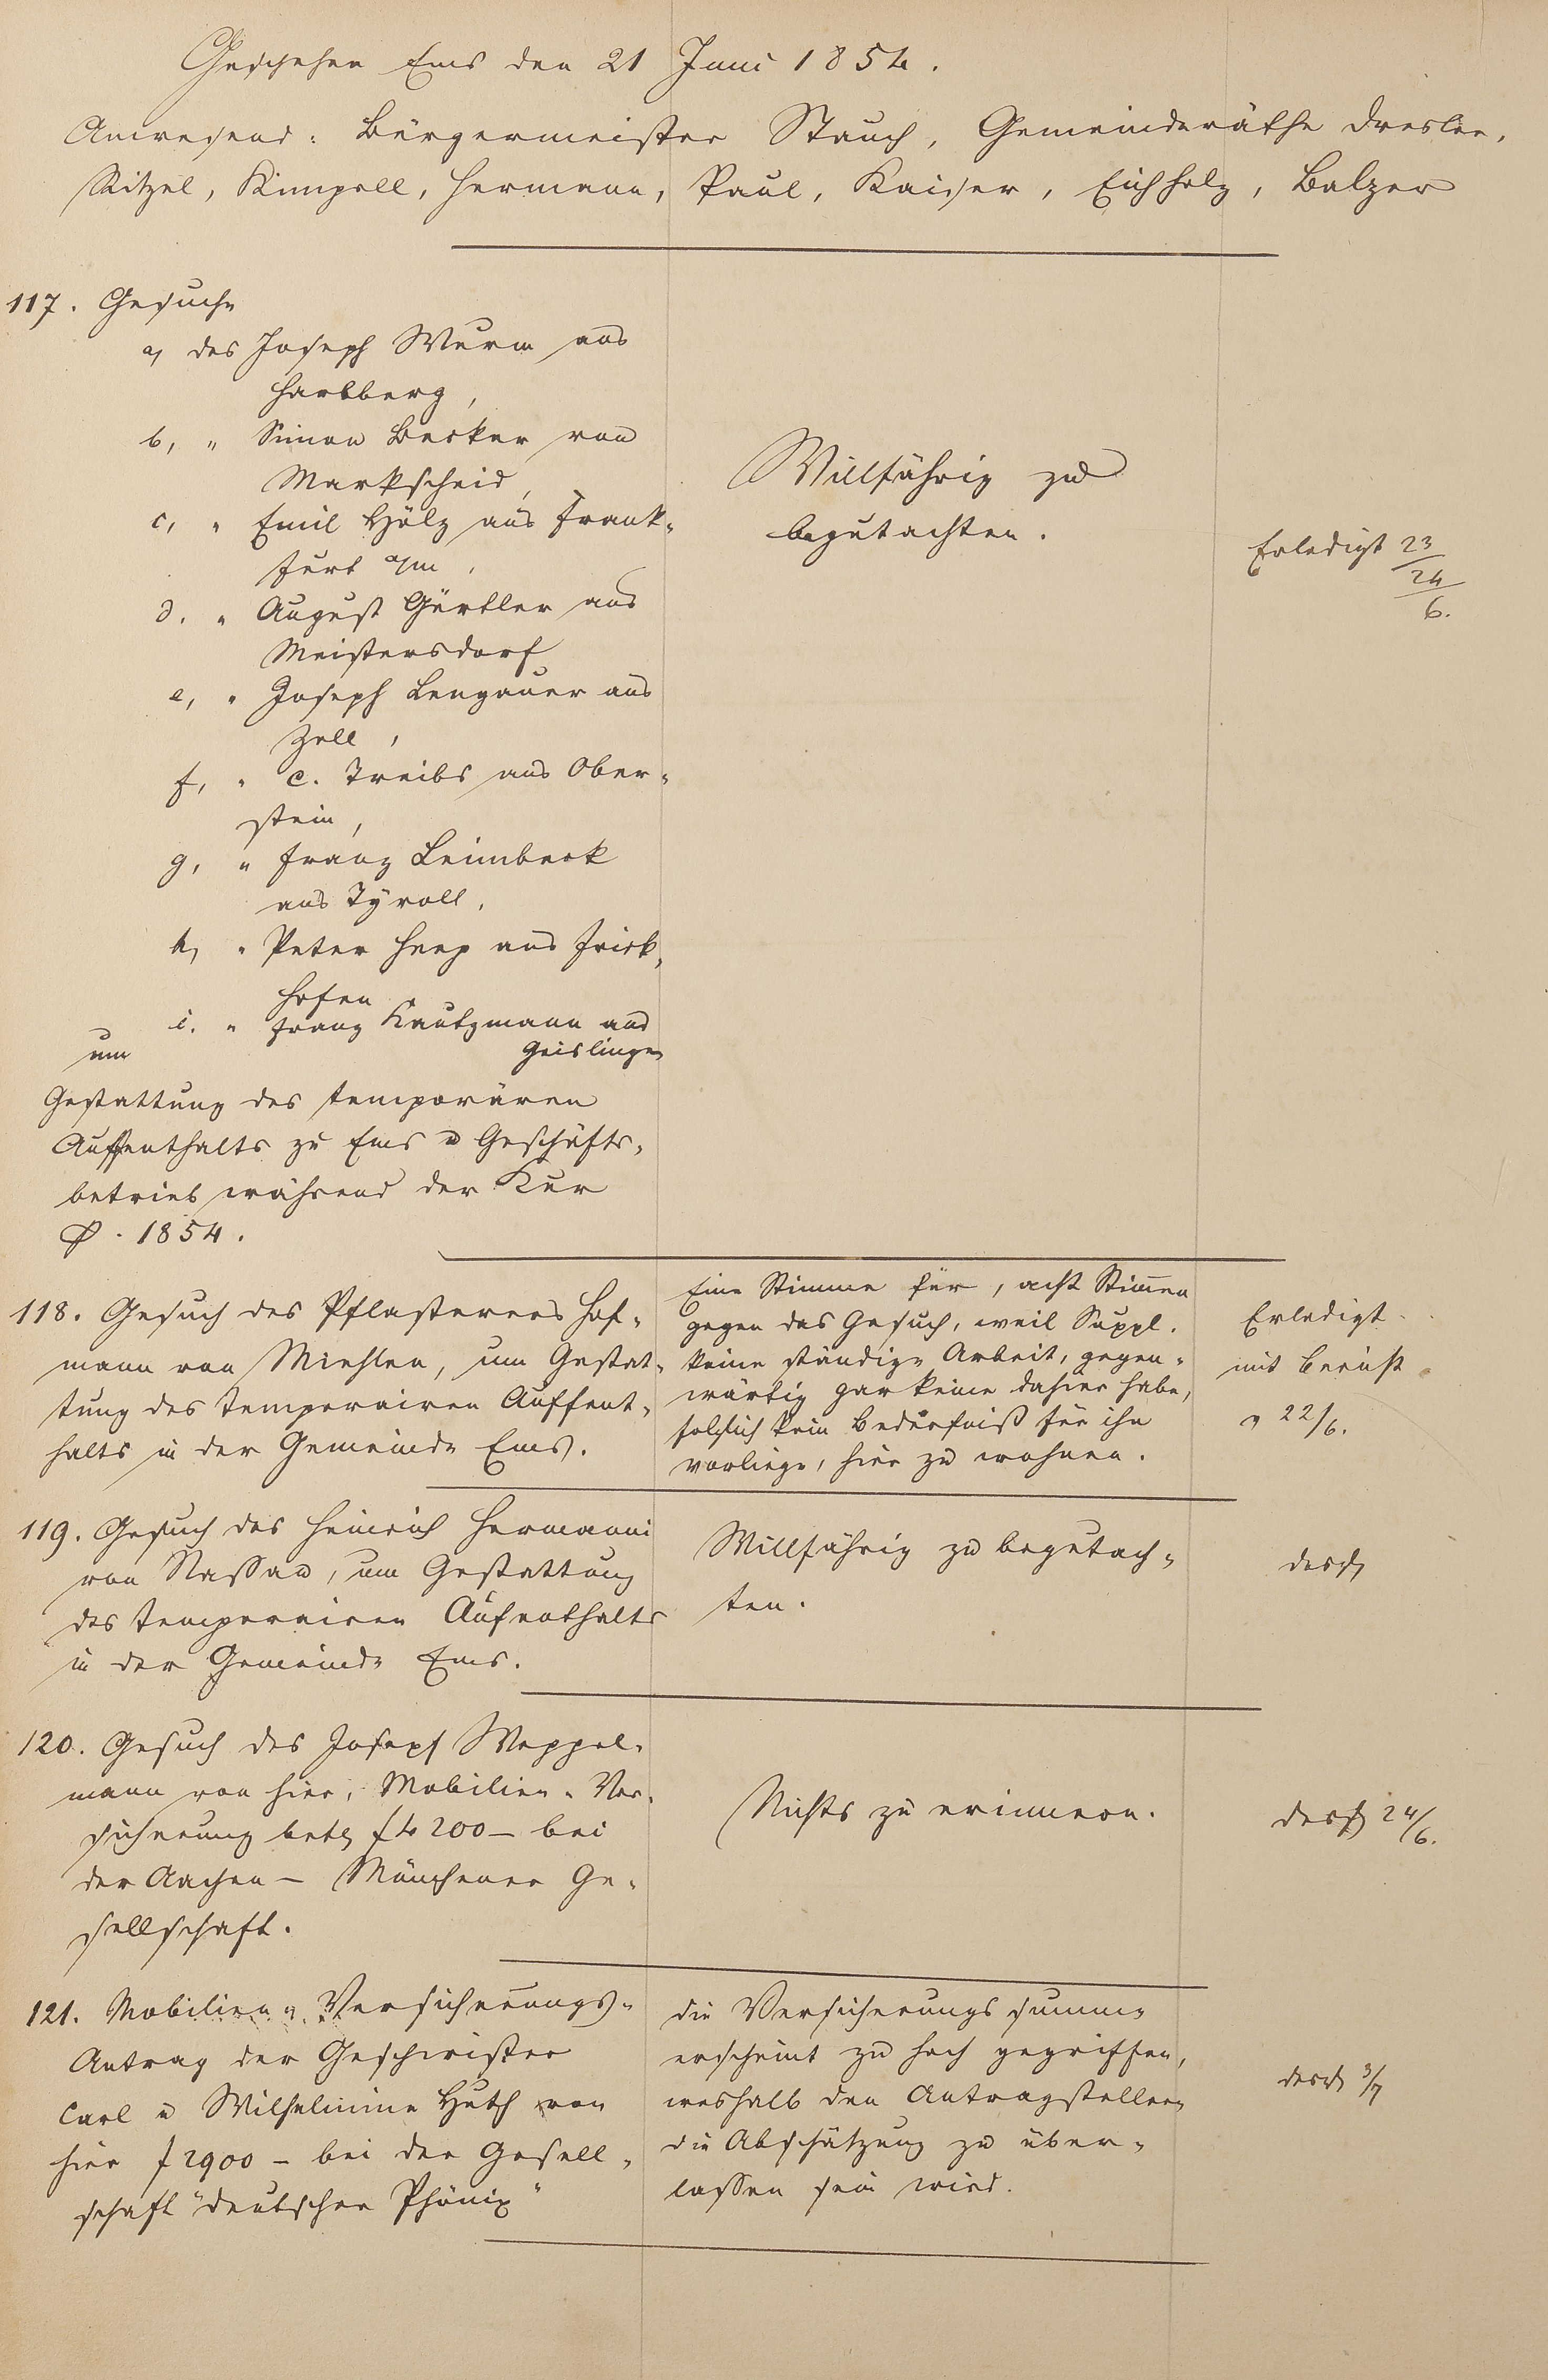 Geschehen Ems den 21 Juni 1854.
Anwesend: Bürgermeister Stauch, Gemeinderäthe Dresler,
Ritzel, Kimpell, Hermann, Paul, Kaiser, Eichholz, Balzer
117. Gesuche
a, des Joseph Wurm aus
Harbberg,
b, " Simon Becker von
Markscheid,
c, " Emil Hölz aus Frank-
furt a/m,
d. " August Gürtler aus
Meistersdorf
e, " Joseph Lengauer aus
Zell,
f, " C. Treibs aus Ober-
stein,
g, " Franz Leimbeck
aus Tÿroll,
h, " Peter Heep aus Frick-
hofen
i. " Franz Kautzmann aus
Geislingen
um
Gestattung des temporären
Auffenthalts zu Ems u Geschäfts-
betrieb während der Kur
p. 1854.
Willfährig zu
begutachten.
Erledigt 23/24/6.
118. Gesuch des Pflasterers Hof-
mann von Miehlen, um Gestat-
tung des temporairen Auffent-
halts in der Gemeinde Ems.
Eine Stimme für, acht Stimen
gegen das Gesuch, weil Suppl.
keine ständige Arbeit, gegen-
wärtig gar keine dahier habe,
folglich kein Bedürfniß für ihn
vorliege, hier zu wohnen.
Erledigt
mit Bericht
v 22/6.
119. Gesuch des Heinrich Hermanni
von Nassau, um Gestattung
des temporairen Aufenthalts
in der Gemeinde Ems.
Willfährig zu begutach-
ten.
desgl
120. Gesuch des Joseph Weppel-
mann von hier, Mobilien-Ver-
sicherung betr f 4200 – bei
der Aachen – Münchener Ge-
sellschaft.
Nichts zu erinnern.
desgl 24/6.
121. Mobilien-Versicherungs-
Antrag der Geschwister
Carl u Wilhelmine Huth von
hier f 2900 – bei der Gesell-
schaft "Deutscher Phönix"
Die Versicherungssumme
erscheint zu hoch gegriffen,
weshalb den Antragstellern
die Abschätzung zu über-
lassen sein wird.
desgl 3/7